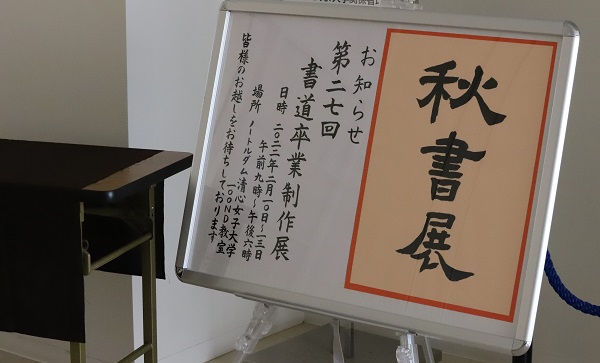 秋書展
お知らせ
第二七回
書道卒業制作展
日時 二〇二二年二月一〇日～一三日
午前九時～午後六時
場所 ノートルダム清心女子大学
一〇〇ND教室
皆様のお越しをお待ちしております